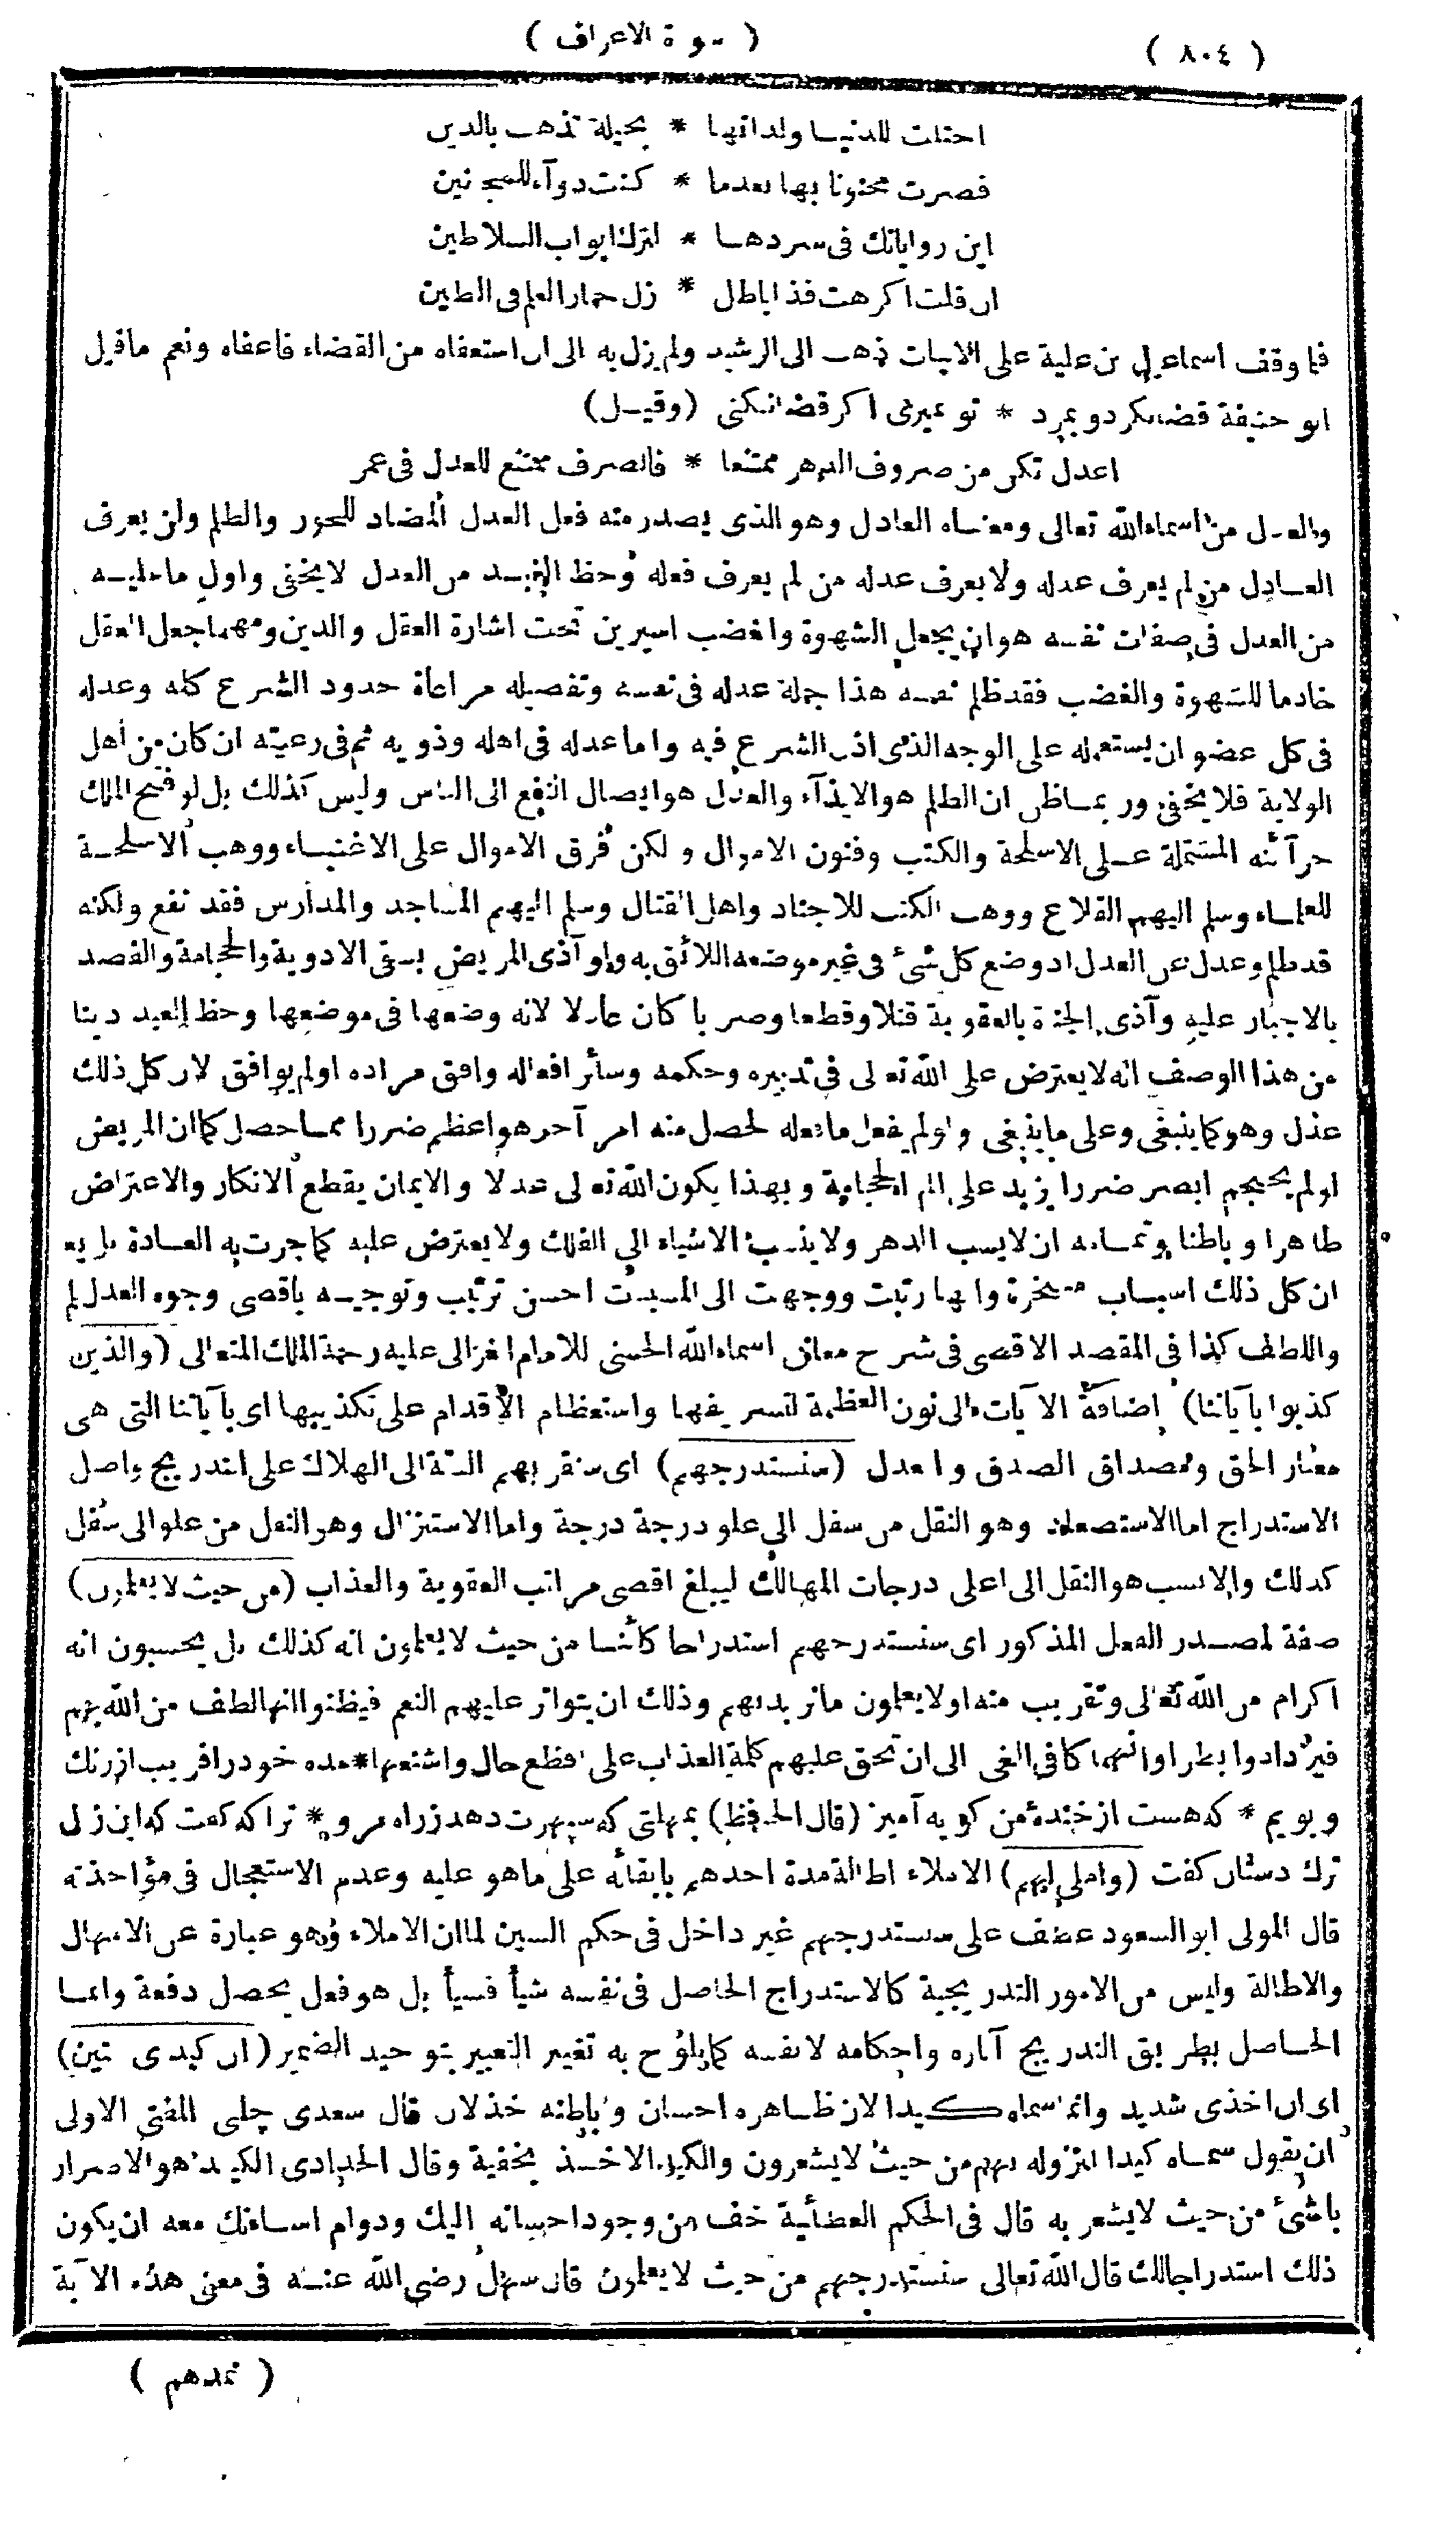 ( سورة الاعراف )
( ٨٠٤ )
احتلت للدنيا ولذاتها * بحيلة تذهب بالدين
فصرت مجنونا بها بعدما * كنت دوآء للمجانين
اين رواياتك فى سردها * لترك ابواب السلاطين
ان قلت اكرهت فذا باطل * زل حمار العلم فى الطين
فلما وقف اسماعيل بن علية على الابيات ذهب الى الرشيد ولم يزل به الى ان استعفاه من القضاء فاعفاه ونعم ماقيل
ابو حنيفة قضا نكرد و بمرد * تو بميرى اكر قضا نكنى (وقيل)
اعدل تكن من صروف الدهر ممتنعا * فالصرف ممتنع للعدل فى عمر
والعدل من اسماء الله تعالى ومعناه العادل وهو الذى يصدر منه فعل العدل المضاد للجور والظلم ولن يعرف
العادل من لم يعرف عدله ولا يعرف عدله من لم يعرف فعله وحظ العبد من العدل لا يخفى واول ما عليه
من العدل فى صفات نفسه هو ان يجعل الشهوة والغضب اسيرين تحت اشارة العقل والدين ومهما جعل العقل
خادما للشهوة والغضب فقد ظلم نفسه هذا جملة عدله فى نفسه وتفصيله مراعاة حدود الشرع كله وعدله
فى كل عضو ان يستعمله على الوجه الذى اذن الشرع فيه واما عدله فى اهله وذويه ثم فى رعيته ان كان من اهل
الولاية فلا يخفى وربما ظن ان الظلم هو الايذآء والعدل هو ايصال النفع الى الناس وليس كذلك بل لو فتح الملك
خزآئنه المشتملة على الاسلحة والكتب وفنون الاموال ولكن فرق الاموال على الاغنياء ووهب الاسلحة
للعلماء وسلم اليهم القلاع ووهب الكتب للاجناد واهل القتال وسلم اليهم المساجد والمدارس فقد نفع ولكنه
قد ظلم وعدل عن العدل اذ وضع كل شئ فى غير موضعه اللائق به ولو آذى المريض بسقى الادوية والحجامة والفصد
بالاجبار عليه وآذى الجناة بالعقوبة قتلا وقطعا وضربا كان عادلا لانه وضعها فى موضعها وحظ العبد دينا
من هذا الوصف انه لا يعترض على الله تعالى فى تدبيره وحكمه وسائر افعاله وافق مراده او لم يوافق لان كل ذلك
عدل وهو كما ينبغى وعلى ما ينبغى ولو لم يفعل ما فعله لحصل منه امر آخر هو اعظم ضررا مما حصل كما ان المريض
لو لم يحتجم لبصر ضررا يزيد على الم الحجامة وبهذا يكون الله تعالى عدلا والايمان يقطع الانكار والاعتراض
ظاهرا وباطنا وتمامه ان لا يسب الدهر ولا ينسب الاشياء الى الفلك ولا يعترض عليه كما جرت به العادة بل يعلم
ان كل ذلك اسباب مسخرة وانها رتبت ووجهت الى المسببات احسن ترتيب وتوجيه باقصى وجوه العدل
واللطف كذا فى المقصد الاقصى فى شرح معانى اسماء الله الحسنى للامام الغزالى عليه رحمة الملك المتعالى (والذين
كذبوا بآياتنا) اضافة الآيات الى نون العظمة لتشريفها واستعظام الاقدام على تكذيبها اى بآياتنا التى هى
معيار الحق ومصداق الصدق والعدل (سنستدرجهم) اى سنقربهم البتة الى الهلاك على التدريج واصل
الاستدراج اما الاستصعاد وهو النقل من سفل الى علو درجة درجة واما الاستنزال وهو النقل من علو الى سفل
كذلك والانسب هو النقل الى اعلى درجات المهالك ليبلغ اقصى مراتب العقوبة والعذاب (من حيث لا يعلمون)
صفة لمصدر الفعل المذكور اى سنستدرجهم استدراجا كائنا من حيث لا يعلمون انه كذلك بل يحسبون انه
اكرام من الله تعالى وتقريب منه او لا يعلمون ما نريد بهم وذلك ان يتواتر عليهم النعم فيظنوا انها لطف من الله بهم
فيزدادوا بطرا وانهماكا فى الغى الى ان تحق عليهم كلمة العذاب على افظع حال واشنعها * مده خود را فريب از رنك
وبويم * كه هست از خندۀ من كريه آميز (قال الحافظ) بمهلتى كه سپهرت دهد ز راه مرو * ترا كه كفت كه اين زال
ترك دستان كفت (واملى لهم) الاملاء اطالة مدة احدهم بابقائه على ما هو عليه وعدم الاستعجال فى مؤاخذته
قال المولى ابو السعود عطف على سنستدرجهم غير داخل فى حكم السين لما ان الاملاء وهو عبارة عن الامهال
والاطالة وليس من الامور التدريجية كالاستدراج الحاصل فى نفسه شيأ فشيأ بل هو فعل يحصل دفعة وانما
الحاصل بطريق التدريج آثاره واحكامه لا نفسه كما يلوح به تغيير التعبير بتوحيد الضمير (ان كيدى متين)
اى ان اخذى شديد وانما سماه كيدا لان ظاهره احسان وباطنه خذلان قال سعدى چلبى المفتى الاولى
ان يقول سماه كيدا لنزوله بهم من حيث لا يشعرون والكيد الاخذ بخفية وقال الحدادى الكيد هو الاضرار
بالشئ من حيث لا يشعر به قال فى الحكم العطائية خف من وجود احسانه اليك ودوام اساءتك معه ان يكون
ذلك استدراجا لك قال الله تعالى سنستدرجهم من حيث لا يعلمون قال سهل رضى الله عنه فى معنى هذه الآية
( نمدهم )